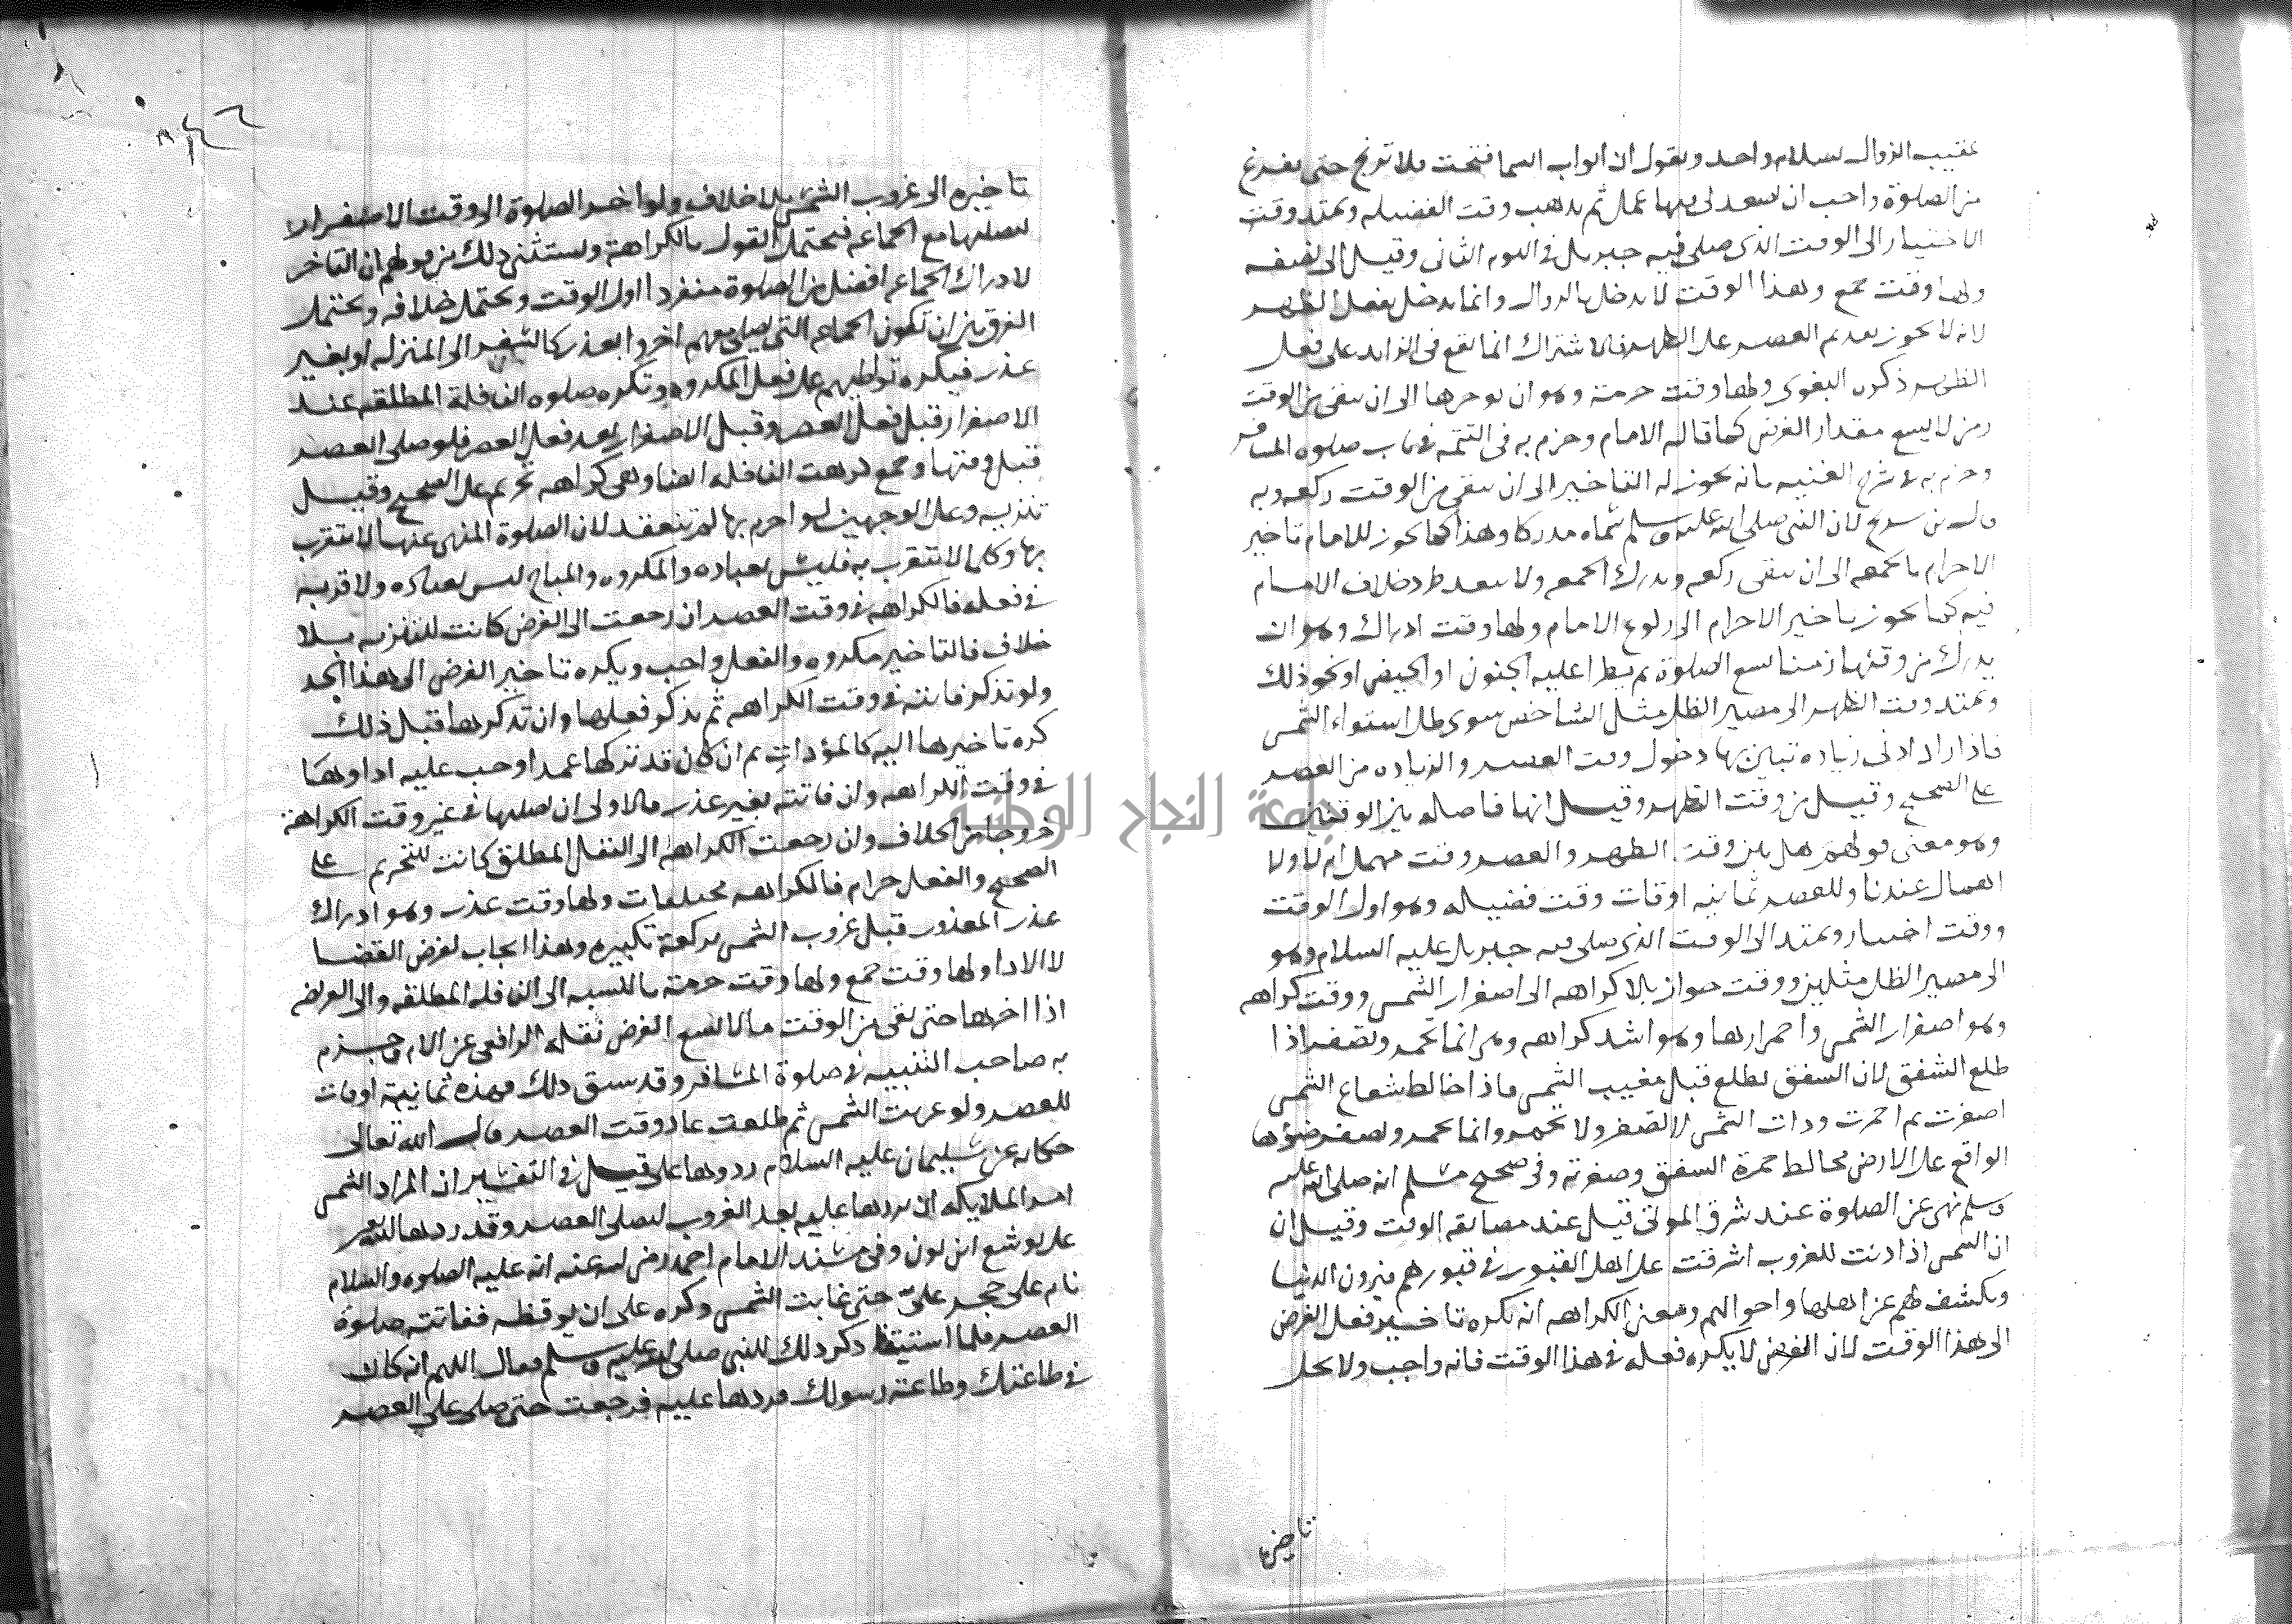 عقيب الزوال بسلام واحد ويقول ان ابواب السما فتحت فلا ترتج حتى يفرغ
من الصلوة واحب ان يصعد لي فيها عمل ثم يذهب وقت الفضيله ويمتد وقت
الاختيار الى الوقت الذي صلى فيه جبريل في اليوم الثاني وقيل الى نصفه
ولها وقت جمع وهذا الوقت لا يدخل بالزوال وانما يدخل بفعل الظهر
لانه لا يجوز تقديم العصر على الظهر فالاشتراك انما يقع في الزايد على فعل
الظهر ذكره البغوي ولها وقت حرمة وهو ان يوخرها الى ان يبقى من الوقت
زمن لا يسع مقدار الفرض كما قاله الامام وجزم به في التتمه في باب صلوة المسافر
وجزم به في شرح الغنيه بانه يجوز له التاخير الى ان يبقى من الوقت ركعه وبه
قال بن سريج لان النبي صلى الله عليه وسلم سماه مدركا وهذا كما يجوز للامام تاخير
الاحرام بالجمعه الى ان يبقى ركعه ويدرك الجمعه ولا خلاف الامام
فيه كما يجوز تاخير الاحرام الى ركوع الامام ولها وقت ادراك وهو ان
يدرك من وقتها زمنا يسع الصلوة ثم يطرا عليه الجنون او الحيض او نحو ذلك
ويمتد وقت الظهر الى مصير الظل مثل الشاخص سوى ظل استواء الشمس
فاذا زاد ادنى زياده تبين بها دخول وقت العصر والزياده من العصر
على الصحيح وقيل من وقت الظهر وقيل انها فاصله بين الوقتين
وهو معنى قولهم هل بين وقت الظهر والعصر وقت مهمل ام لا ولا
اهمال عندنا وللعصر ثمانيه اوقات وقت فضيله وهو اول الوقت
ووقت اختيار ويمتد الى الوقت الذي صلى فيه جبريل عليه السلام وهو
الى مصير الظل مثلين ووقت جواز بلا كراهه الى اصفرار الشمس ووقت كراهه
وهو اصفرار الشمس واحمرارها وهو اشد كراهه وهي انما تحمر وتصفر اذا
طلع الشفق لان الشفق يطلع قبل مغيب الشمس فاذا خالط شعاع الشمس
اصفرت ثم احمرت وذات الشمس لا تصفر ولا تحمر وانما يحمر ويصفر ضوؤها
الواقع على الارض مخالط حمرة الشفق وصفرته وفي صحيح مسلم انه صلى الله عليه
وسلم نهى عن الصلوة عند شرق الموتى قيل عند مضايقه الوقت وقيل ان
ان الشمس اذا دنت للغروب اشرقت على اهل القبور في قبورهم فيرون الدنيا
ويكشف لهم عن اهلها واحوالهم ومعنى الكراهه انه يكره تاخير فعل الفرض
الى هذا الوقت لان الفرض لا يكره فعله في هذا الوقت فانه واجب ولا يحل
تاخيره
تاخيره الى غروب الشمس بلا خلاف ولو اخر الصلوة الى وقت الاصفرار
ليصليها مع الجماعه فيحتمل القول بالكراهة ويستثنى ذلك من قولهم ان التاخر
لادراك الجماعه افضل من الصلوة منفردا اول الوقت ويحتمل خلافه ويحتمل
الفرق بين ان تكون الجماعه التي يصلي معهم اخروا بعذر كالسفر الى المنزله او بغير
عذر فيكره تواطيهم على فعل المكروه وتكره صلوه النافلة المطلقه عند
الاصفرار قبل فعل العصر وقبل الاصفرار بعد فعل العصر فلو صلى العصر
قبل وقتها وجمع كرهت النافله ايضا وهي كراهه تحريم على الصحيح وقيل
تنزيه وعلى الوجهين لو احرم بها لم تنعقد لان الصلوة المنهي عنها لا يتقرب
بها وكل ما لا يتقرب به فليس بعباده والمكروه والمباح ليس بعباده ولا قربه
في فعله فالكراهه في وقت العصر ان رجعت الى الفرض كانت للتنزيه بلا
خلاف فالتاخير مكروه والفعل واجب ويكره تاخير الفرض الى هذا الحد
ولو تذكر فائته في وقت الكراهه ثم تذكر فعلها وان تذكرها قبل ذلك
كره تاخيرها اليه كالمؤدات ثم ان كان قد تركها عمدا وجب عليه اداوها
في وقت الكراهه وان فاتته بغير عذر فالاولى ان يصليها في غير وقت الكراهة
خروجا من الخلاف وان رجعت الكراهه الى النفل المطلق كانت للتحريم على
الصحيح والفعل حرام فالكراهه مختلفات ولها وقت عذر وهو ادراك
عذر المعذور قبل غروب الشمس بركعة تكبيره وهذا ايجاب لفرض القضا
لا الادا ولها وقت جمع ولها وقت حرمة بالنسبه الى النافله المطلقه والى الفريضه
اذا اخرها حتى بقى من الوقت ما لا يسع الفرض نقله الرافعي عن الامام وجزم
به صاحب التنبيه في صلوة المسافر وقد سبق ذلك فهذه ثمانية اوقات
للعصر ولو غربت الشمس ثم طلعت عاد وقت العصر قال الله تعالى
حكايه عن سليمان عليه السلام ردوها على قيل في التفسير ان المراد الشمس
امر الملايكه ان يردها عليه بعد الغروب ليصلي العصر وقد ردها الله
على يوشع ابن نون وفي مسند الامام احمد رضي الله عنه انه عليه الصلوه والسلام
نام على حجر عليّ حتى غابت الشمس وكره على ان يوقظه ففاتته صلوة
العصر فلما استيقظ ذكر ذلك للنبي صلى الله عليه وسلم فقال اللهم انه كان
في طاعتك وطاعته رسولك فردها عليه فرجعت حتى صلى على العصر
جامعة النجاح الوطنية